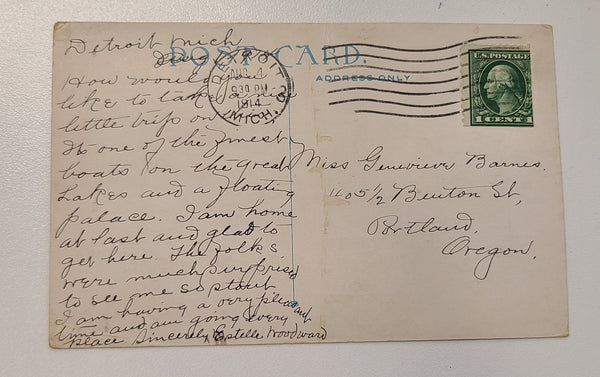 POST CARD.
ADDRESS ONLY
DETROIT
AUG 4
930 PM
1914
MICH.
U.S. POSTAGE
1 CENT 1
Detroit Mich
Aug
How would you
like to take a nice
little trip on
Its one of the finest
boats on the Great
Lakes and a floating
palace. I am home
at last and glad to
get here. The folks
were much surprised
to see me so stout
I am having a very pleasant
time and am going every
place Sincerely, Estelle Woodward
Miss Genevieve Barnes.
405½ Benton St,
Portland,
Oregon.